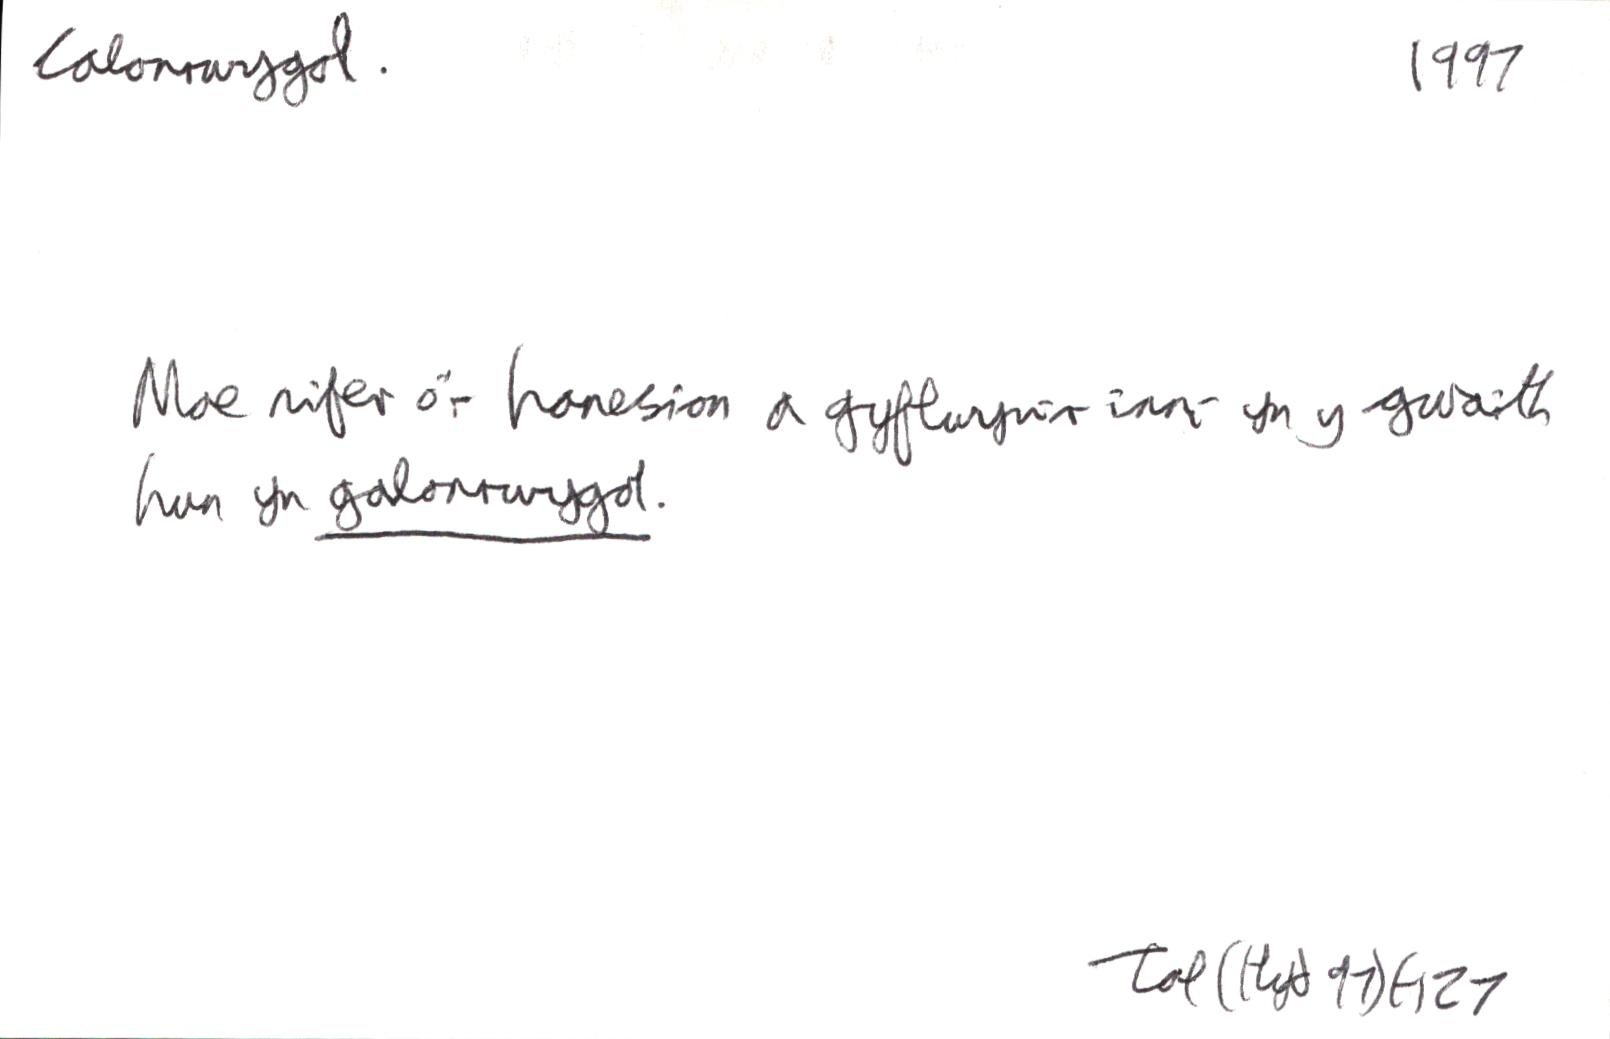 Calonrwygol. 1997
Mae nifer o'r hanesion a gyflwynir inni yn y gwaith
hwn yn galonrwygol.
(Hyd 97) 27